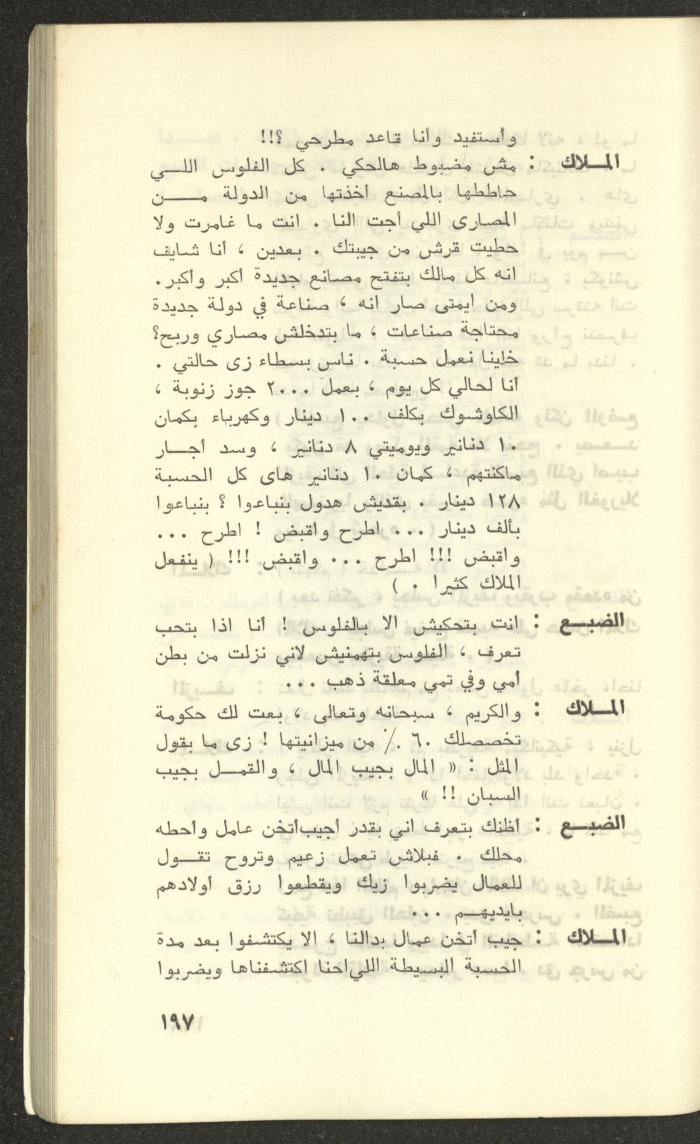 وأستفيد وأنا قاعد مطرحي ؟!!
المـــلاك : مش مضبوط هالحكي . كل الفلوس اللـــي
حاططها بالمصنع أخذتها من الدولة مـــــن
المصارى اللي أجت النا . انت ما غامرت ولا
حطيت قرش من جيبتك . بعدين ، أنا شايف
انه كل مالك بتفتح مصانع جديدة أكبر وأكبر.
ومن ايمتى صار انه ، صناعة في دولة جديدة
محتاجة صناعات ، ما بتدخلش مصاري وربح؟
خلينا نعمل حسبة . ناس بسطاء زى حالتي .
أنا لحالي كل يوم ، بعمل ٢٠٠٠ جوز زنوبة ،
الكاوشوك بكلف ١٠٠ دينار وكهرباء بكمان
١٠ دنانير ويوميتي ٨ دنانير ، وسد أجـــار
ماكنتهم ، كمان ١٠ دنانير هاى كل الحسبة
١٢٨ دينار . بقديش هدول بنباعوا ؟ بنباعوا
بألف دينار... اطرح واقبض ! اطرح ...
واقبض !!! اطرح ... واقبض !!! ( ينفعل
الملاك كثيرا . )
الضبـــع : انت بتحكيش الا بالفلوس ! أنا اذا بتحب
تعرف ، الفلوس بتهمنيش لاني نزلت من بطن
أمي وفي تمي معلقة ذهب ...
المـــلاك : والكريم ، سبحانه وتعالى ، بعت لك حكومة
تخصصلك ٦٠ ٪ من ميزانيتها ! زى ما بقول
المثل : « المال بجيب المال ، والقمـــل بجيب
السبان !! »
الضبـــع : أظنك بتعرف اني بقدر أجيب أتخن عامل وأحطه
محلك . فبلاش تعمل زعيم وتروح تقـــول
للعمال يضربوا زيك ويقطعوا رزق أولادهم
بايديهـــم ...
المـــلاك : جيب أتخن عمال بدالنا ، الا يكتشفوا بعد مدة
الحسبة البسيطة اللي احنا اكتشفناها ويضربوا
١٩٧